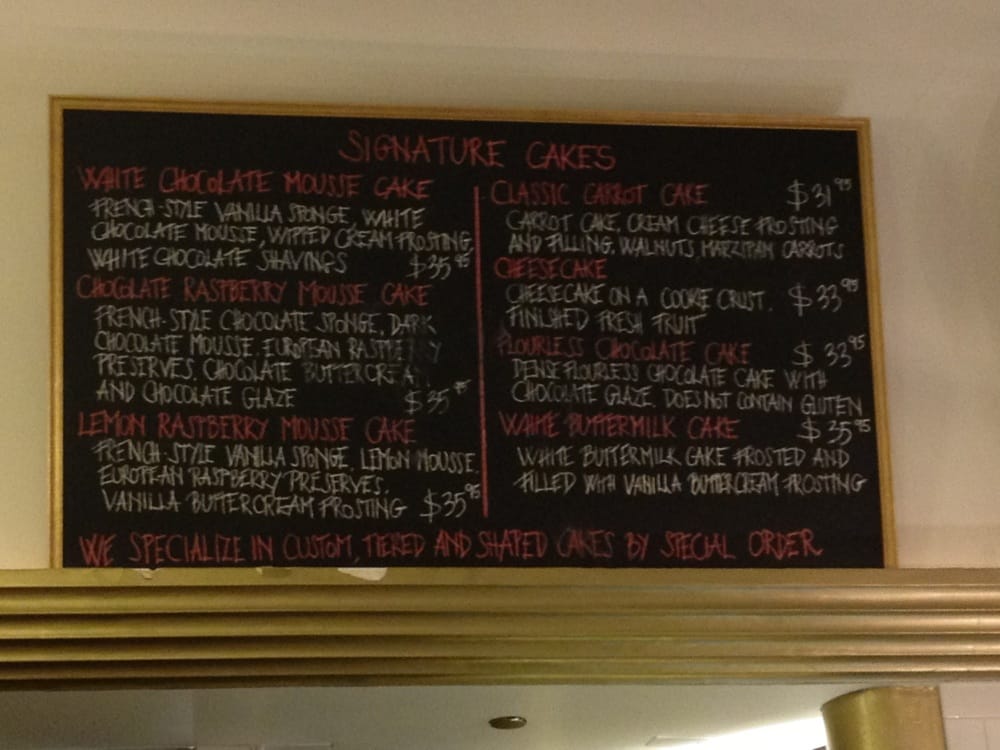 SIGNATURE CAKES
WHITE CHOCOLATE MOUSSE CAKE
FRENCH-STYLE VANILLA SPONGE, WHITE
CHOCOLATE MOUSSE, WIPPED CREAM FROSTING,
WHITE CHOCOLATE SHAVINGS $35.95
CHOCOLATE RASPBERRY MOUSSE CAKE
FRENCH-STYLE CHOCOLATE SPONGE, DARK
CHOCOLATE MOUSSE, EUROPEAN RASPBERRY
PRESERVES, CHOCOLATE BUTTERCREAM
AND CHOCOLATE GLAZE $35.95
LEMON RASPBERRY MOUSSE CAKE
FRENCH-STYLE VANILLA SPONGE, LEMON MOUSSE,
EUROPEAN RASPBERRY PRESERVES,
VANILLA BUTTERCREAM FROSTING $35.95
CLASSIC CARROT CAKE $31.95
CARROT CAKE, CREAM CHEESE FROSTING
AND FILLING, WALNUTS, MARZIPAN CARROTS
CHEESECAKE
CHEESECAKE ON A COOKIE CRUST, $33.95
FINISHED FRESH FRUIT
FLOURLESS CHOCOLATE CAKE $33.95
DENSE FLOURLESS CHOCOLATE CAKE WITH
CHOCOLATE GLAZE. DOES NOT CONTAIN GLUTEN
WHITE BUTTERMILK CAKE $35.95
WHITE BUTTERMILK CAKE FROSTED AND
FILLED WITH VANILLA BUTTERCREAM FROSTING
WE SPECIALIZE IN CUSTOM, TIERED AND SHAPED CAKES BY SPECIAL ORDER